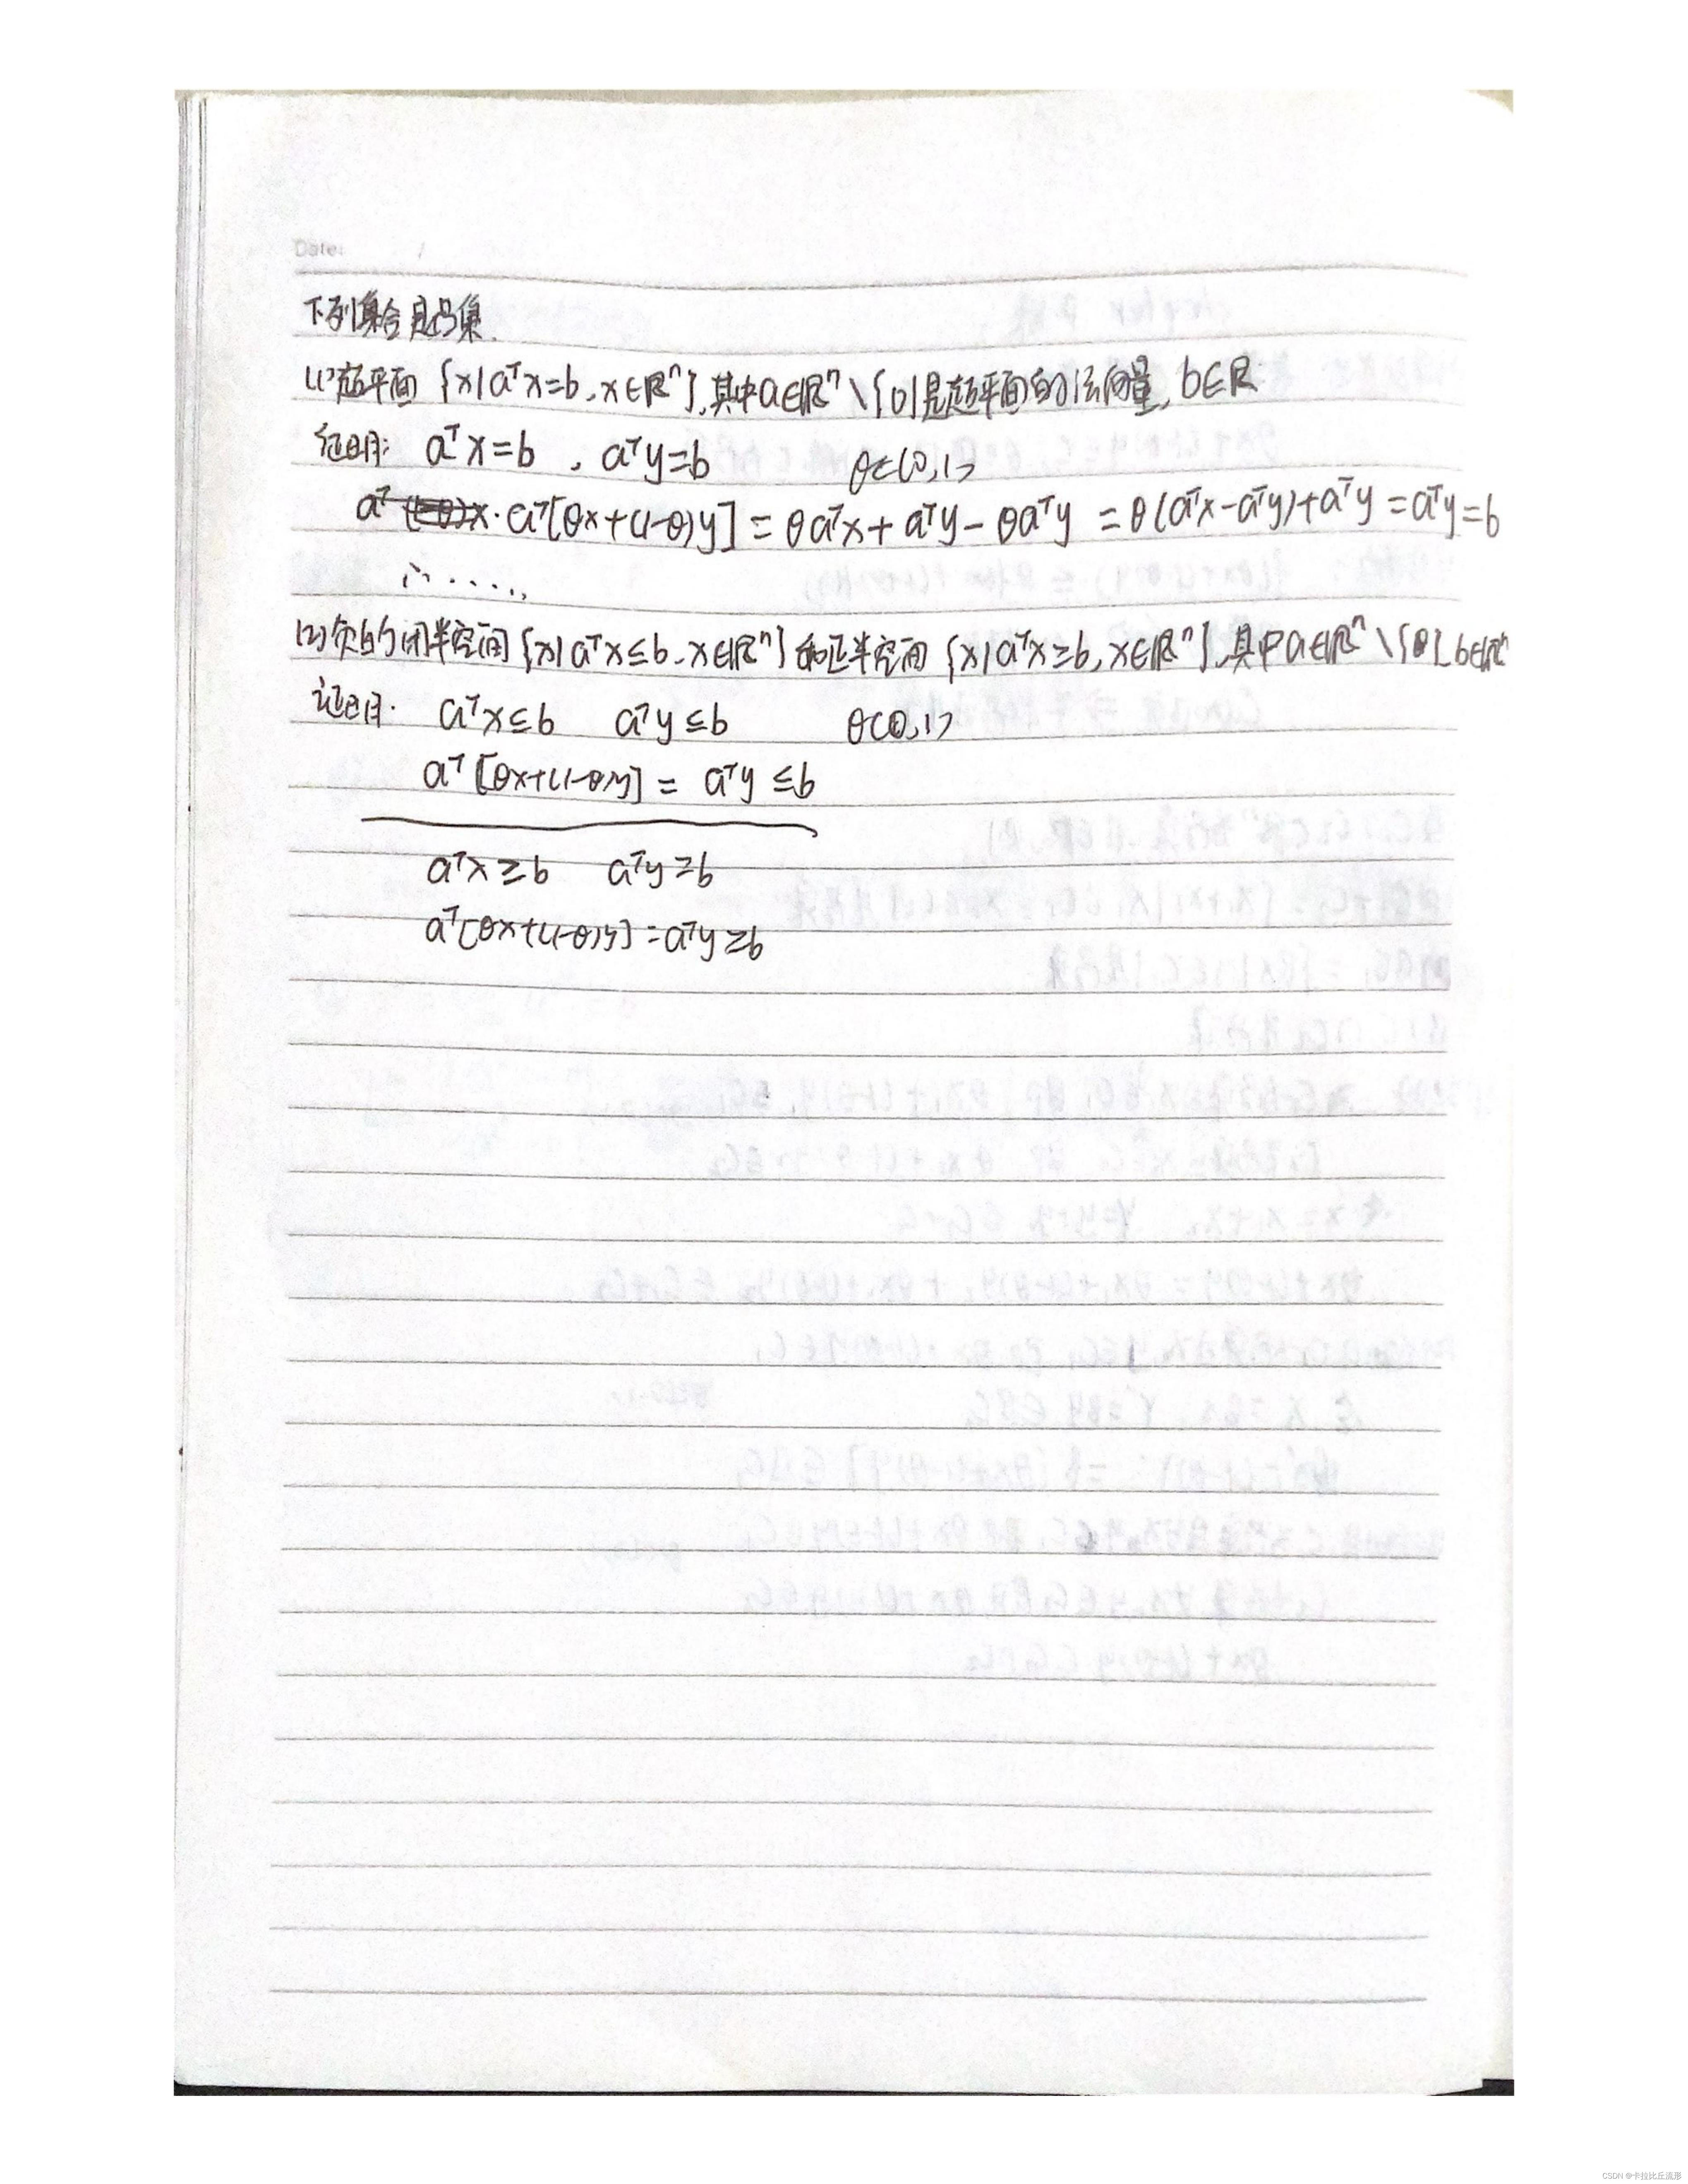 Date: /
下列集合是凸集.
(1)超平面 {x|aᵀx=b, x∈ℝⁿ}, 其中a∈ℝⁿ\{0}是超平面的法向量, b∈ℝ
证明: aᵀx=b , aᵀy=b θ∈(0,1)
aᵀ · aᵀ[θx+(1-θ)y] = θaᵀx + aᵀy - θaᵀy = θ(aᵀx-aᵀy)+aᵀy = aᵀy = b
∴ ......
(2) 的闭半空间 {x|aᵀx≤b, x∈ℝⁿ} 和正半空间 {x|aᵀx≥b, x∈ℝⁿ}, 其中a∈ℝⁿ\{0} b∈ℝⁿ
证明. aᵀx≤b aᵀy≤b θ(0,1)
aᵀ[θx+(1-θ)y] = aᵀy ≤b
aᵀx≥b aᵀy≥b
aᵀ[θx+(1-θ)y] = aᵀy≥b
CSDN @卡拉比丘流形